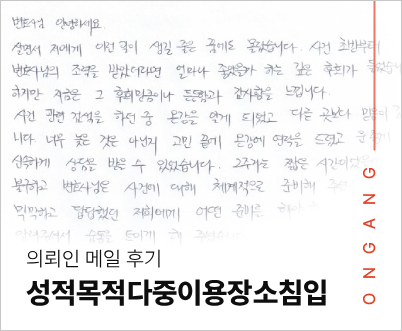 변호사님 안녕하세요.
살면서 저에게 이런 일이 생길 줄은 꿈에도 몰랐습니다. 사건 초반부터
변호사님의 조력을 받았더라면 얼마나 좋았을까 하는 깊은 후회가
하지만 지금은 그 후회만큼이나 든든함과 감사함을 느낍니다.
사건 관련 검색을 하던 중 온강을 알게 되었고 다른 곳보다
너무 늦은 것은 아닌지 고민 끝에 온강에 연락을 드렸고
신속하게 상담을 받을 수 있었습니다. 2주라는 짧은
불구하고 변호사님은 사건에 대해 체계적으로 준비해
막막하고 답답했던 저희에게
의뢰인 메일 후기
성적목적다중이용장소침입
ONGANG